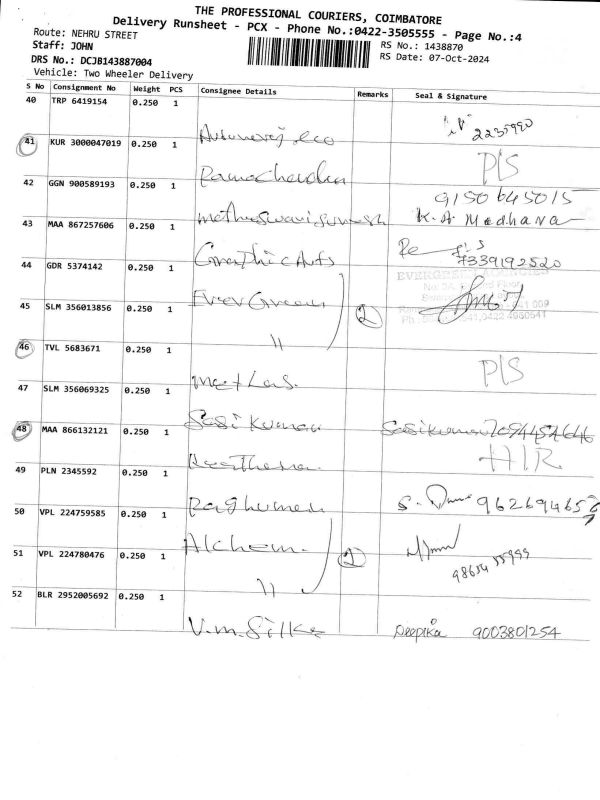 THE PROFESSIONAL COURIERS, COIMBATORE
Delivery Runsheet - PCX - Phone No.:0422-3505555 - Page No.:4
Route: NEHRU STREET
RS No.: 1438870
Staff: JOHN
RS Date: 07-Oct-2024
DRS No.: DCJB143887004
Vehicle: Two Wheeler Delivery
S No Consignment No Weight PCS Consignee Details Remarks Seal & Signature
40 TRP 6419154 0.250 1
2235990
41 KUR 3000047019 0.250 1
P/S
Ramachandra
42 GGN 900589193 0.250 1
9150645015
K. A Madhava
43 MAA 867257606 0.250 1
7339192520
Graphic Auts
44 GDR 5374142 0.250 1
EVERGREEN AGENCIES
Ever Green
2
45 SLM 356013856 0.250 1
"
46 TVL 5683671 0.250 1
P/S
47 SLM 356069325 0.250 1
Sasikumar
Sasikumar 7094454646
48 MAA 866132121 0.250 1
49 PLN 2345592 0.250 1
Raghuman
50 VPL 224759585 0.250 1
Alchem.
2
51 VPL 224780476 0.250 1
"
52 BLR 2952005692 0.250 1
V.M. Silks
Deepika 9003801254